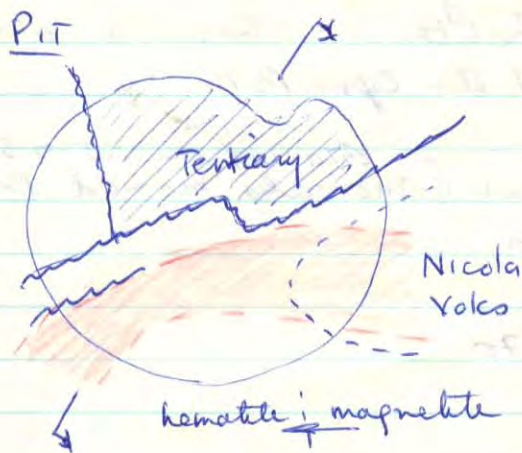 PIT
Tertiary
Nicola
Volcs
hematite ; magnetite